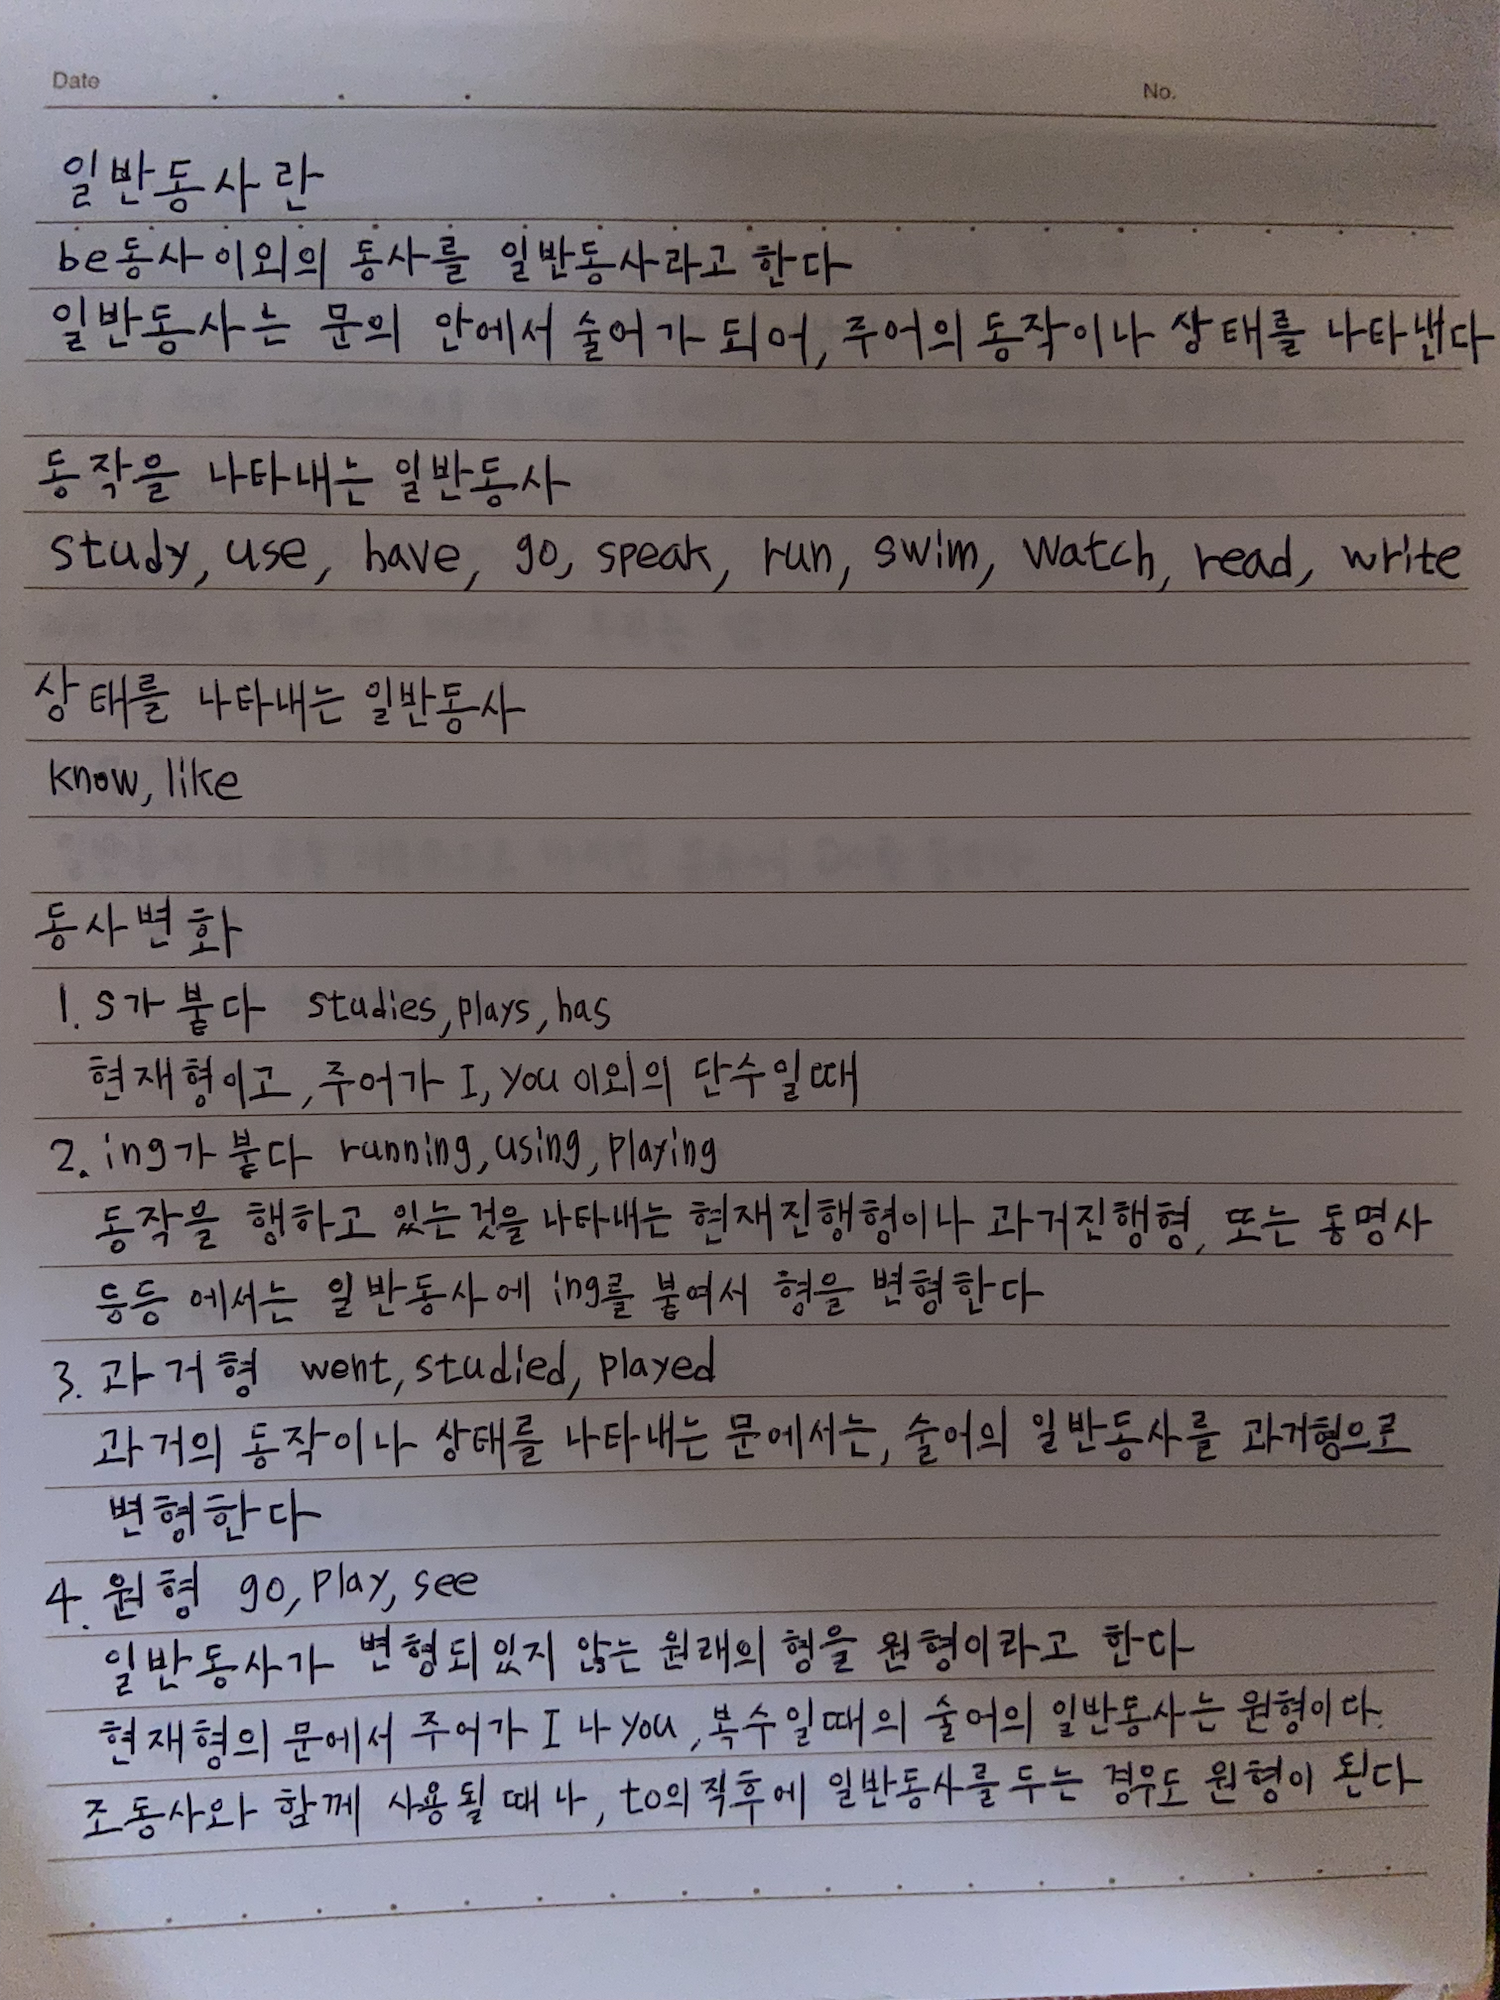 Date . . .
No.
일반동사란
be동사이외의 동사를 일반동사라고 한다
일반동사는 문의 안에서 술어가 되어, 주어의 동작이나 상태를 나타낸다
동작을 나타내는 일반동사
study, use, have, go, speak, run, swim, watch, read, write
상태를 나타내는 일반동사
know, like
동사변화
1. s가 붙다 studies, plays, has
현재형이고, 주어가 I, you 이외의 단수일때
2. ing가 붙다 running, using, playing
동작을 행하고 있는것을 나타내는 현재진행형이나 과거진행형, 또는 동명사
등등 에서는 일반동사에 ing를 붙여서 형을 변형한다
3. 과거형 went, studied, played
과거의 동작이나 상태를 나타내는 문에서는, 술어의 일반동사를 과거형으로
변형한다
4. 원형 go, play, see
일반동사가 변형되있지 않는 원래의 형을 원형이라고 한다
현재형의 문에서 주어가 I 나 you, 복수일때의 술어의 일반동사는 원형이다.
조동사와 함께 사용될 때나, to의 직후에 일반동사를 두는 경우도 원형이 된다